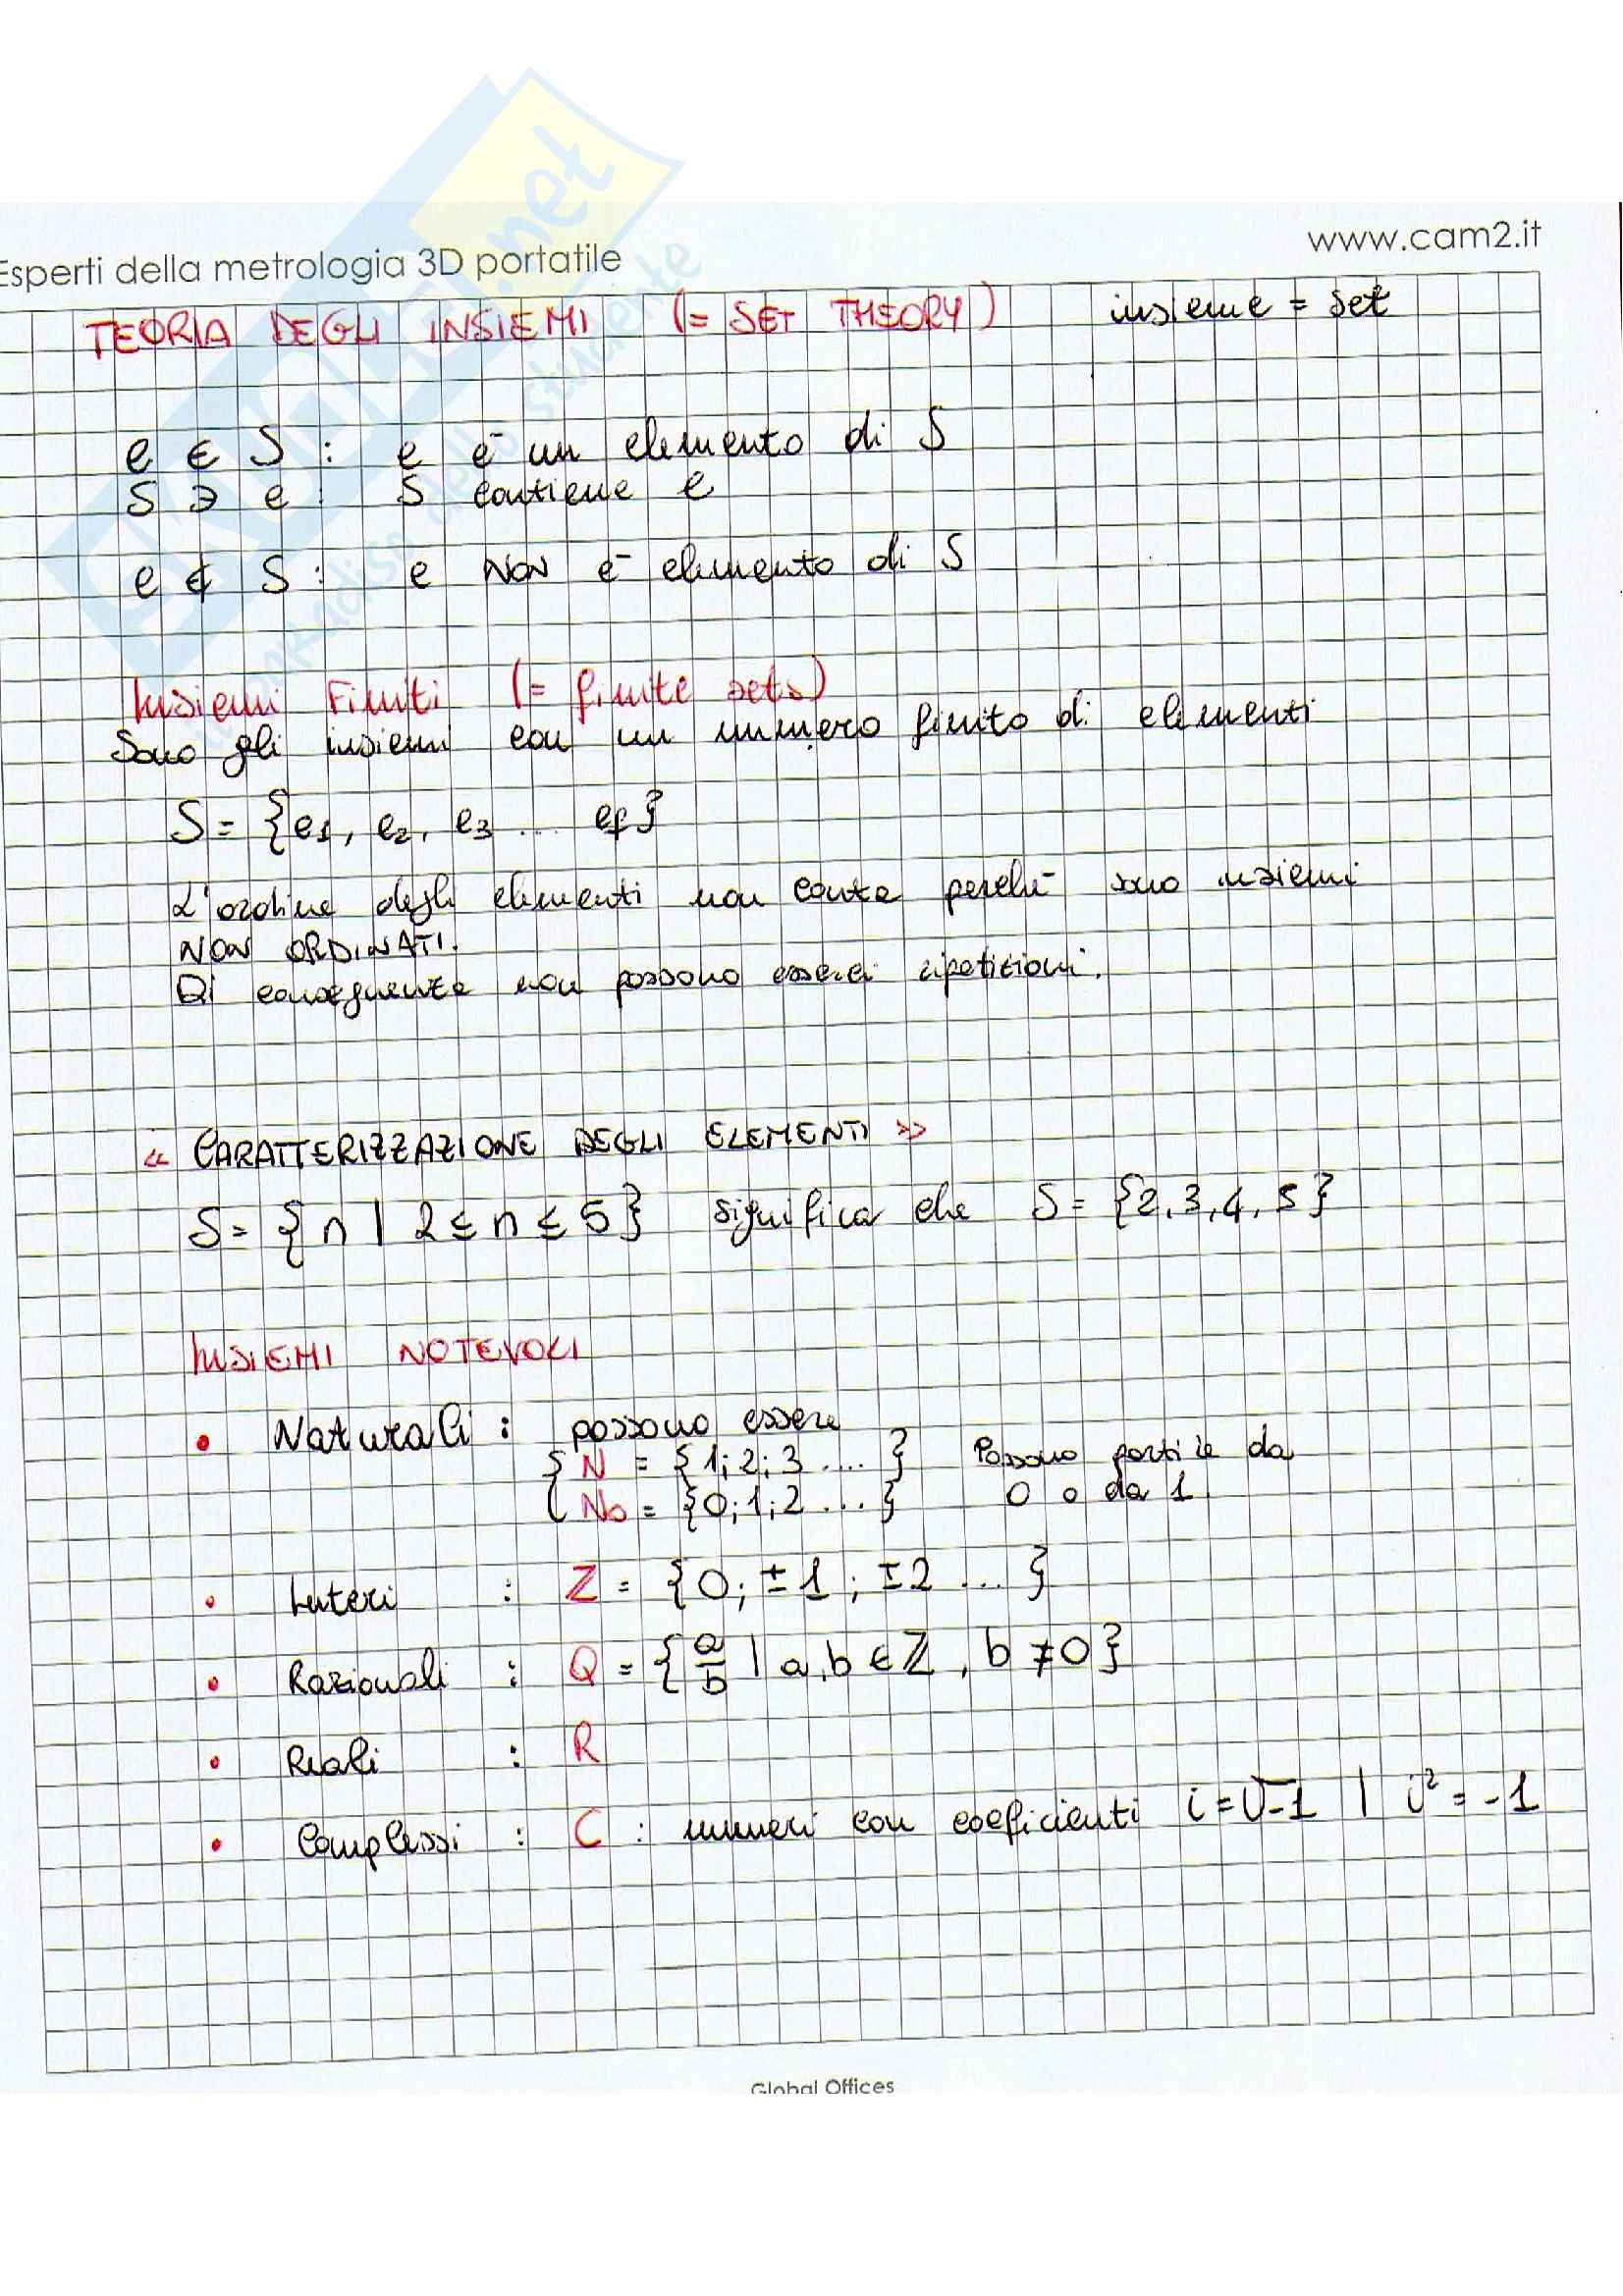 Esperti della metrologia 3D portatile
www.cam2.it
TEORIA DEGLI INSIEMI (= SET THEORY) insieme = set
e ∈ S : e è un elemento di S
S ∋ e : S contiene e
e ∉ S : e NON è elemento di S
Insiemi Finiti (= finite sets)
Sono gli insiemi con un numero finito di elementi
S = {e1, e2, e3 ... ef}
L'ordine degli elementi non conta perché sono insiemi
NON ORDINATI.
Di conseguenza non possono esserci ripetizioni.
« CARATTERIZZAZIONE DEGLI ELEMENTI »
S = {n | 2 ≤ n ≤ 5} significa che S = {2,3,4,5}
INSIEMI NOTEVOLI
• Naturali : possono essere
{ N = {1;2;3 ....} Possono partire da
N0 = {0;1;2 ...} 0 o da 1.
• Interi : Z = {0; ±1; ±2 ...}
• Razionali : Q = {a/b | a,b ∈ Z, b ≠ 0}
• Reali : R
• Complessi : C : numeri con coeficienti i = √-1 | i² = -1
Global Offices
SKUOLA.net
il paradiso dello studente